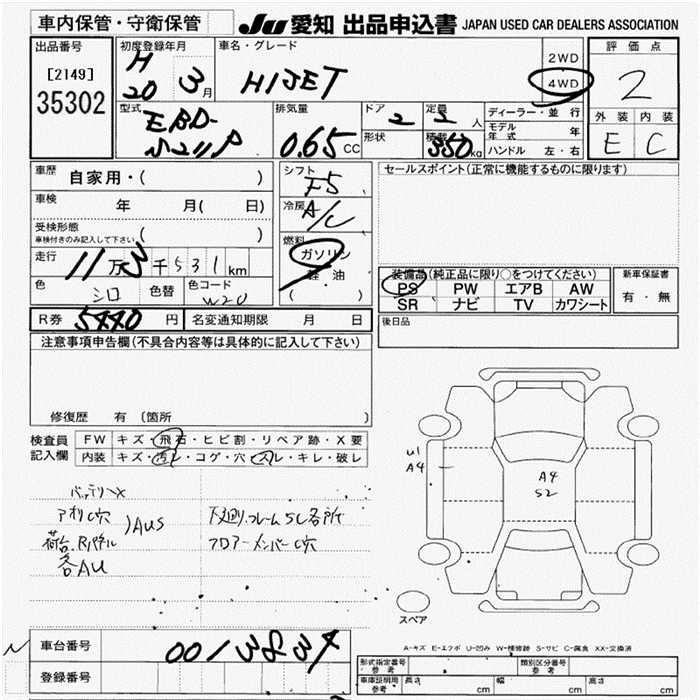 車内保管・守衛保管
JU 愛知 出品申込書 JAPAN USED CAR DEALERS ASSOCIATION
出品番号
[2149]
35302
初度登録年月
H
20 3 月
車名・グレード
HIJET
2WD
4WD
評価点
2
外装 内装
E C
型式
EBD-
S211P
排気量
0.65 CC
ドア
2
形状
定員
2 人
積載
350 kg
ディーラー・並行
モデル年式 年
ハンドル 左・右
車歴
自家用・( )
車検
年 月( 日)
受検形態
車検付きのみ記入して下さい ( )
走行
11 万 3 千 531 km
色
シロ
色替
色コード
W20
シフト
F5
冷房
A/C
燃料
ガソリン
軽油
( )
セールスポイント(正常に機能するものに限ります)
装備品(純正品に限り○をつけてください)
PS PW エアB AW
SR ナビ TV カワシート
新車保証書
有・無
後日品
R券 5440 円
名変通知期限 月 日
注意事項申告欄(不具合内容等は具体的に記入して下さい)
修復歴 有(箇所 )
検査員
記入欄
FW キズ・飛石・ヒビ割・リペア跡・X要
内装 キズ・汚レ・コゲ・穴・スレ・キレ・破レ
バッテリーX
アオリC穴
荷台、Rパネル
)AUS
各AU
下廻り、フレームSC各所
フロアーメンバーC穴
U1
A4
A4
S2
スペア
A-キズ E-エクボ U-凹み W-補修跡 S-サビ C-腐食 XX-交換済
車台番号
0013834
登録番号
形式指定番号
参考
類別区分番号
参考
車庫証明用
参考
長さ cm 幅 cm 高さ cm